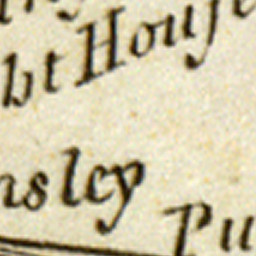 ht Houſe
nsley
Pu